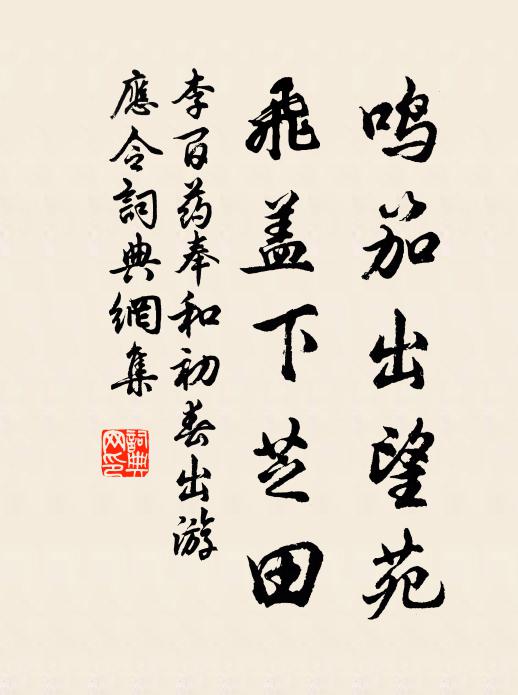 鸣笳出望苑
飛盖下芝田
李百药奉和初春出游
應令詞典網集
詞典网印